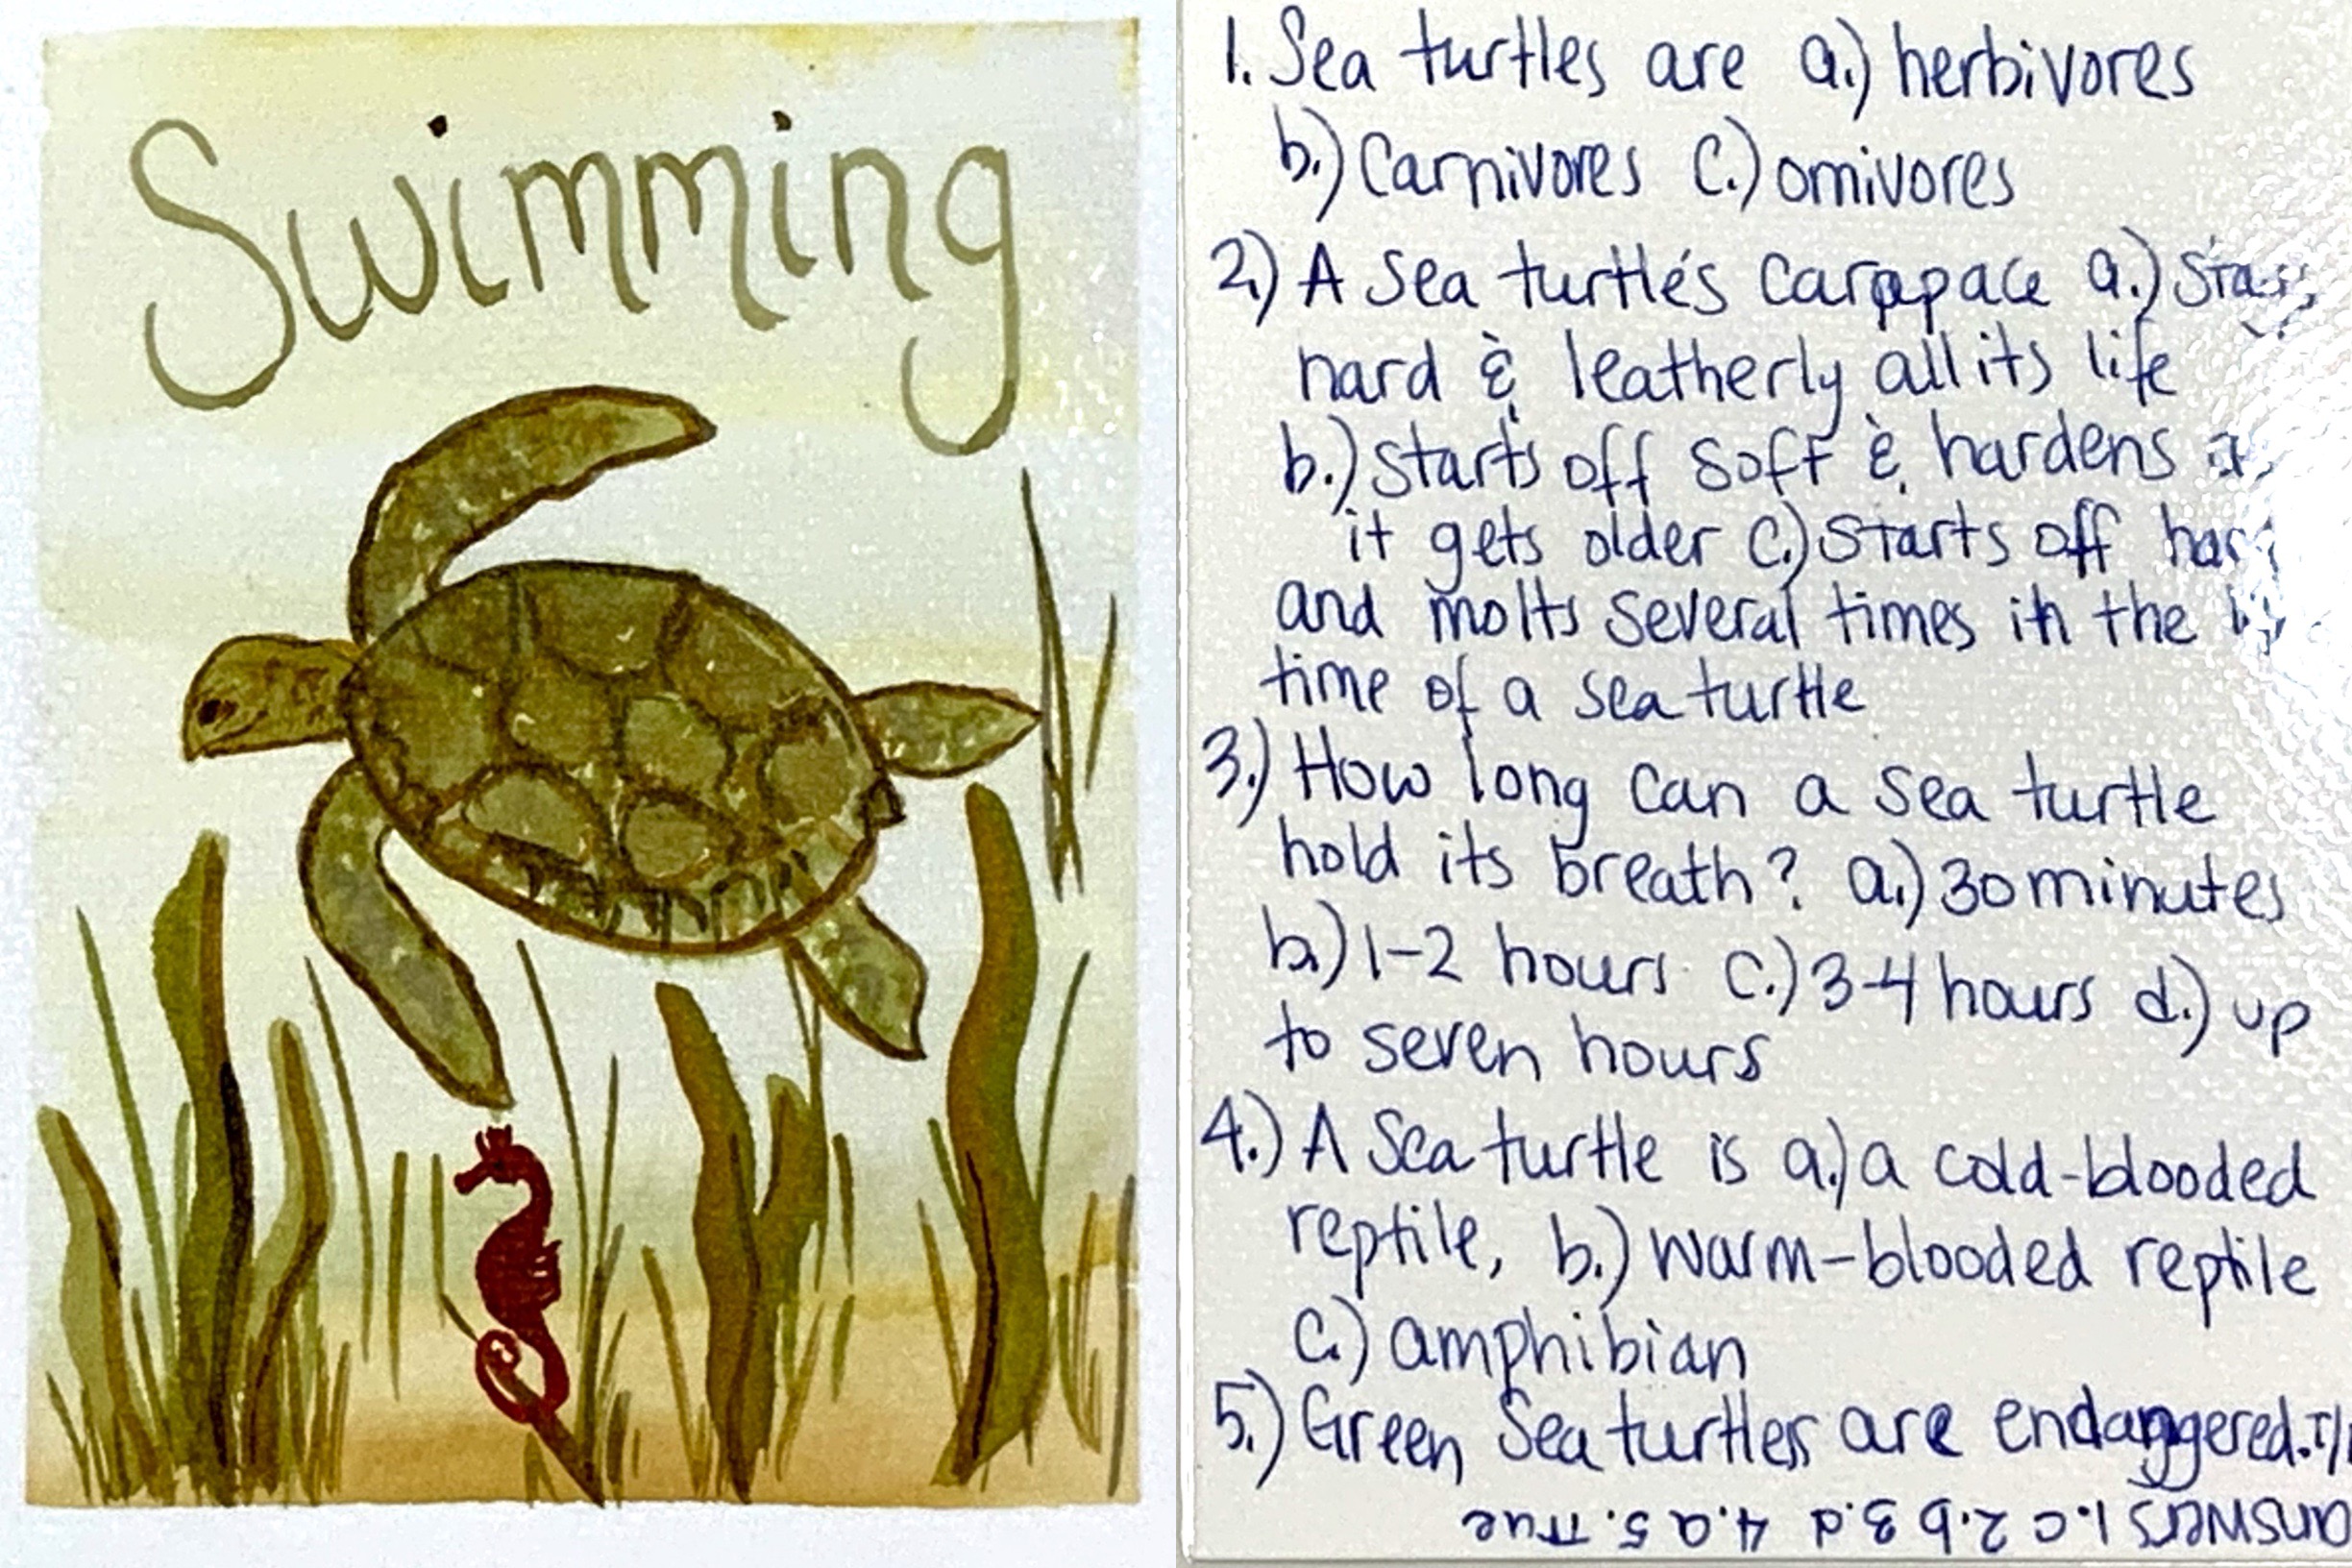 Swimming
1. Sea turtles are a.) herbivores
b.) Carnivores C.) omivores
2.) A sea turtle's carapace a.)
hard & leatherly all its life
b.) starts off soft & hardens
it gets older C.) starts off
and molts several times in the
time of a sea turtle
3.) How long can a sea turtle
hold its breath? a.) 30 minutes
b.) 1-2 hours C.) 3-4 hours d.) up
to seven hours
4.) A Sea turtle is a.) a cold-blooded
reptile, b.) warm-blooded reptile
C.) amphibian
5.) Green Sea turtles are endangered.
answers 1.c 2.b 3.d 4.a 5. True